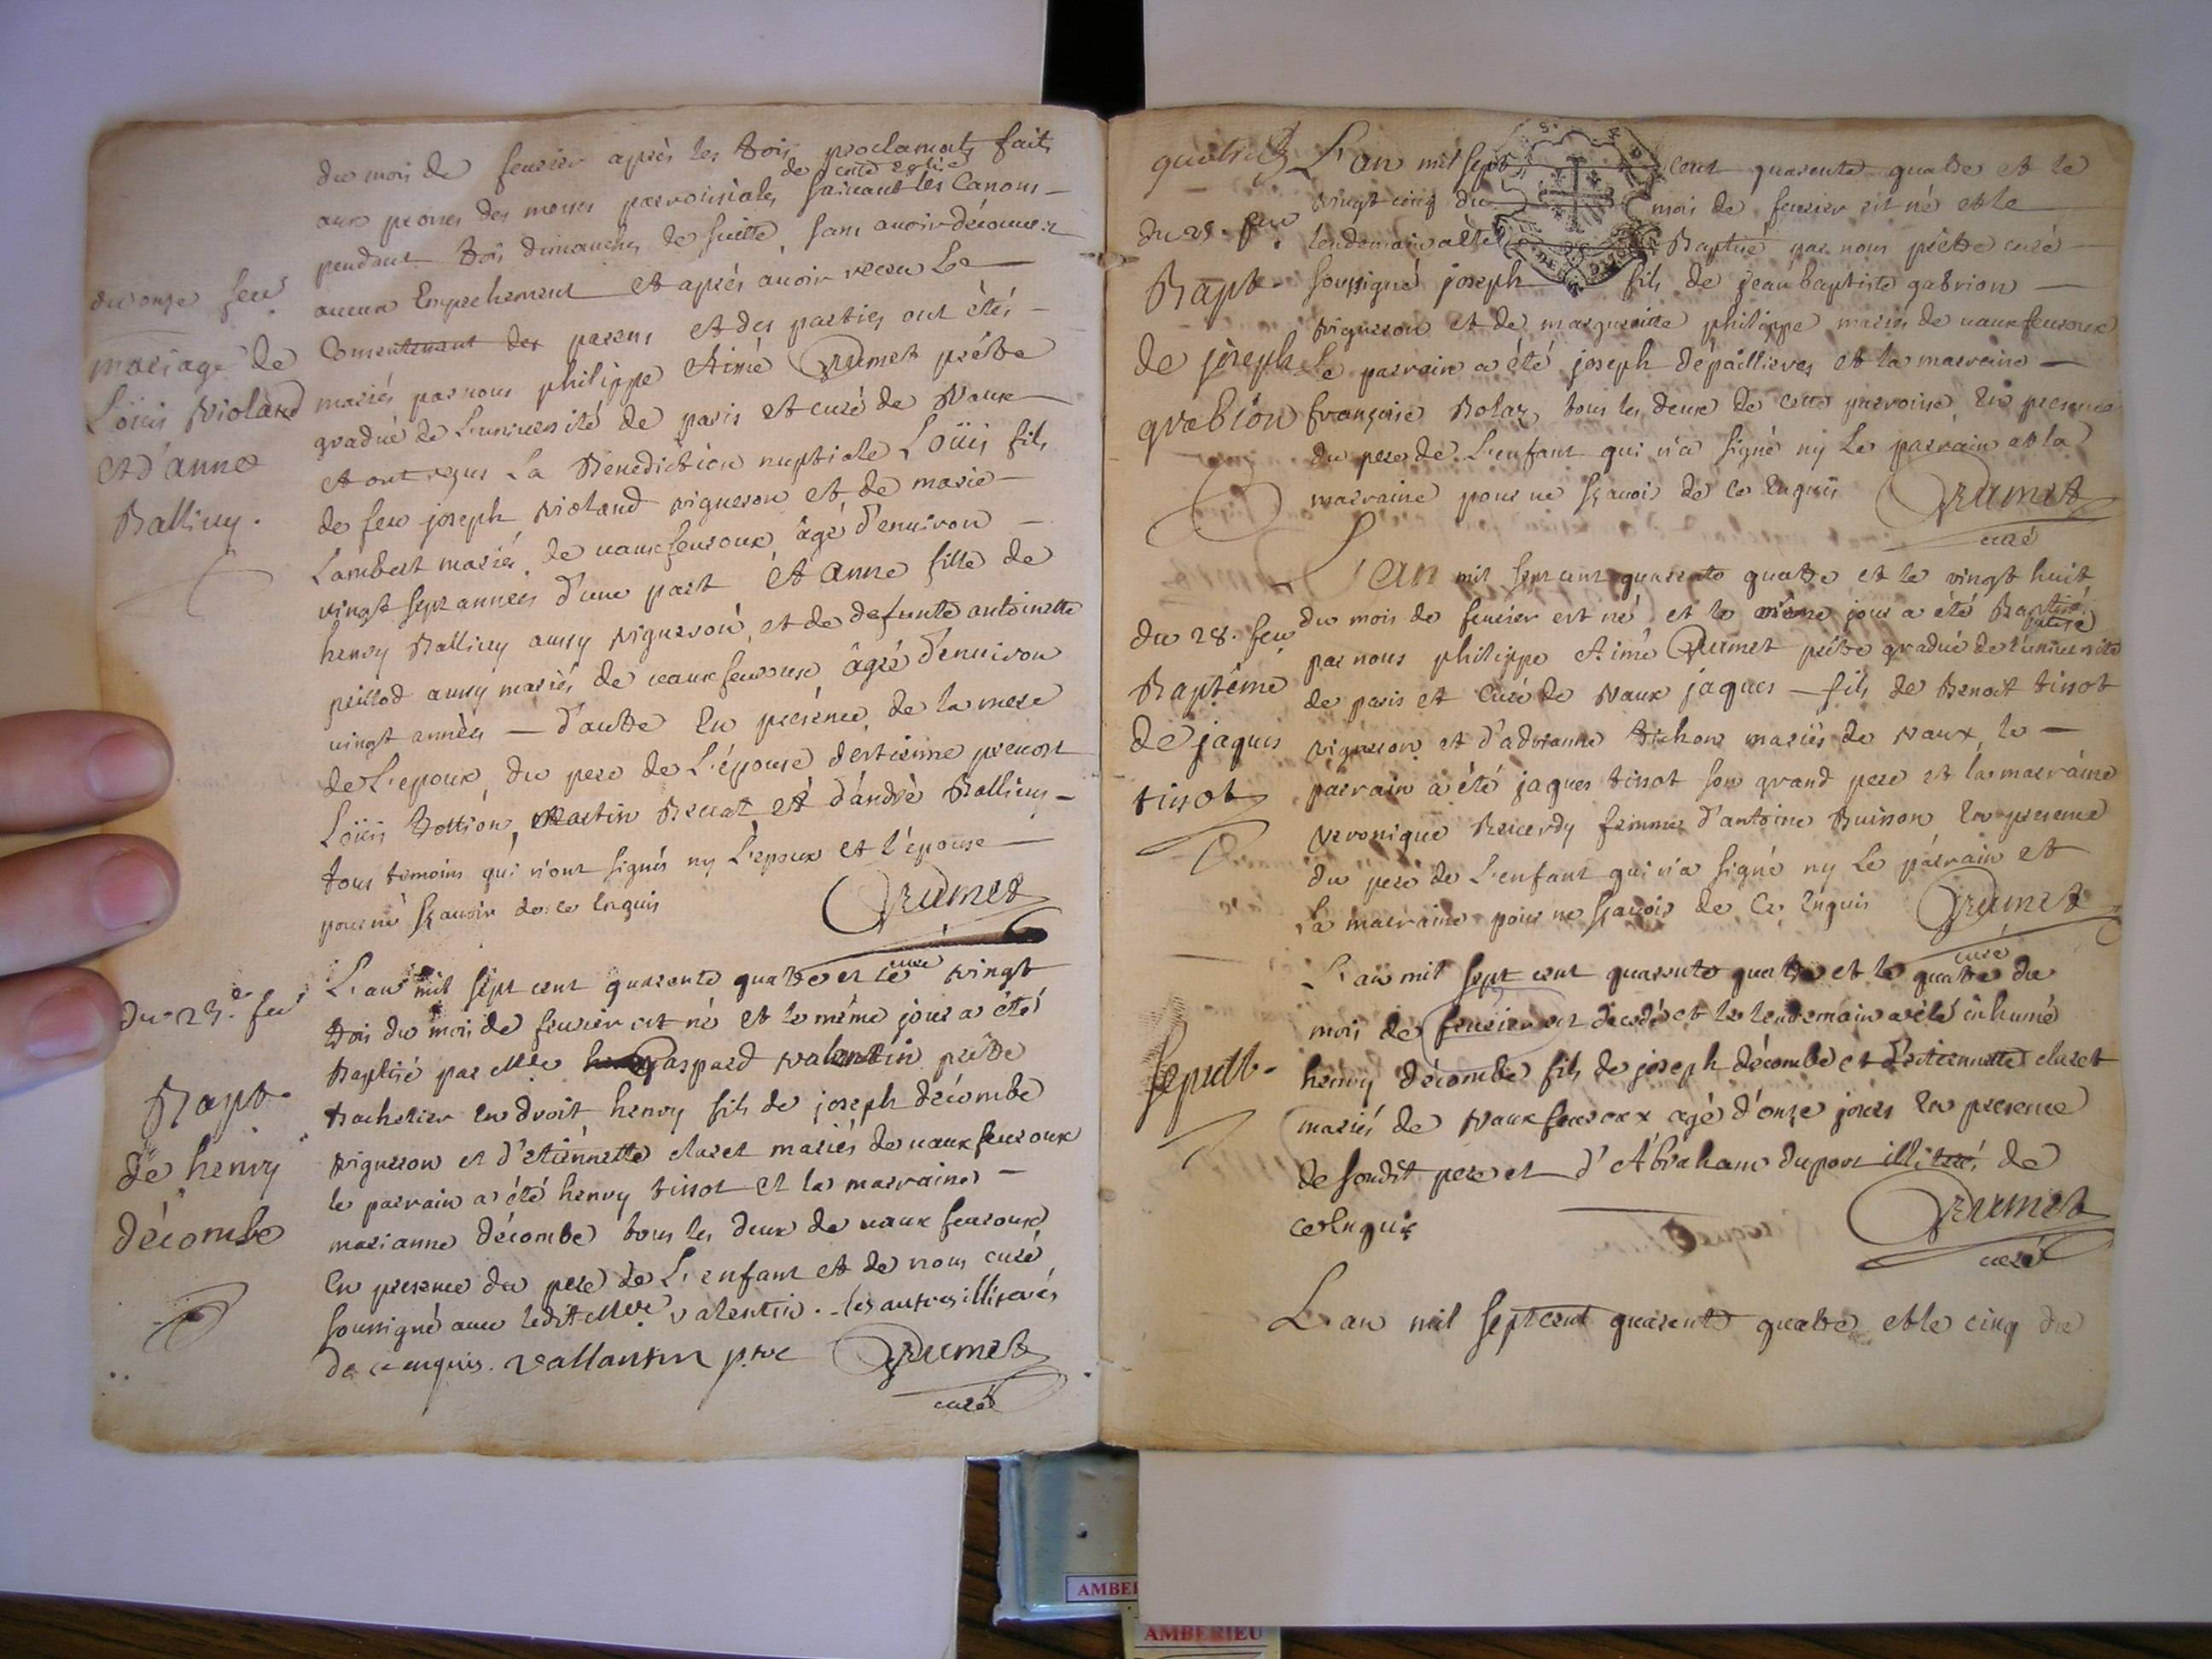 du mois de feurier après les trois proclamats faits
de cette eglise
aux prones des messes parroissiales suiuant les Canons
pendant trois dimanches de suitte, sans auoir découuert
du onze feur.
aucun Empechement et après auoir receu Le
Consentement des parens et des parties ont étés
mariage de
mariés par nous philippe Aimé Brumet prétre
Loüis Violand
gradué de L'uniuersité de paris et curé de Vaux
et d'anne
et ont reçus La Benediction nuptiale Loüis fils
Balliuy.
de feu joseph Violand vigneron et de marie
Lambert mariés de uaux feuroux âgé d'enuiron
vingt sept années d'une part et anne fille de
henry Balliuy aussy vigneron, et de defunte antoinette
peillod aussy mariés de uaux feuroux âgée d'enuiron
vingt années d'autre En presence de la mere
de L'epoux, du pere de L'épouse d'estienne preuost
Loüis Bottion, Martin Beccat et d'andré Balliuy
tous temoins qui n'ont signés ny L'epoux et l'épouse
pour ne sçauoir de ce Enquis Brumet
curé
du 23.e feur
L'an mil sept cent quarente quatre et le vingt
trois du mois de feurier est né et le méme jour a été
Baptisé par Mre gaspard valentin prétre
Bapt.
Bachelier En droit henry fils de joseph décombe
de henry
vigneron et d'etiennette claret mariés de uaux feuroux
décombe
le parrain a été henry tissot et la marraine
marianne décombe tous les deux de uaux feuroux
En presence du pere de L'enfant et de nous curé
soussigné auec ledit Mre valentin. les autres illiterés
de ce enquis. Vallantin p.tre Brumet
curé
L'an mil sept cent quarente quatre et le
vingt cinq du mois de feurier est né et le
du 25. feur.
lendemain a été Baptisé par nous prétre curé
Bapt.
soussigné joseph fils de jean baptiste gabrion
vigneron et de margueritte philippe mariés de uaux feuroux
de joseph
Le parrain a été joseph dépaillieres et la marraine
grabion
françoise Bolaz tous les deux de cette parroisse En presence
du pere de L'enfant qui n'a signé ny Le parrain et la
marraine pour ne sçauoir de ce Enquis Brumet
curé
L'an mil sept cent quarente quatre et le vingt huit
du 28. feur
du mois de feurier est né et le méme jour a été Baptisé
par nous philippe Aimé Brumet prétre gradué de l'uniuersité
Baptéme
de paris et Curé de Vaux jaques fils de Benoit tissot
de jaques
vigneron et d'adrianne trichon mariés de Vaux, le
tissot
parrain a été jaques tissot son grand pere et la marraine
veronique Reuerdy femme d'antoine Buisson En presence
du pere de L'enfant qui n'a signé ny Le parrain et
La marraine pour ne sçauoir de Ce Enquis Brumet
curé
L'an mil sept cent quarente quatre et le quatre du
mois de feurier est decedé et le lendemain a été inhumé
sepult.
henry décombe fils de joseph décombe et d'estiennette claret
mariés de Vaux feuroux agé d'onze jours En presence
de sondit pere et d'Abraham dupont illiterés de
ce Enquis Brumet
curé
L'an mil sept cent quarente quatre et le cinq du
AMBERIEU